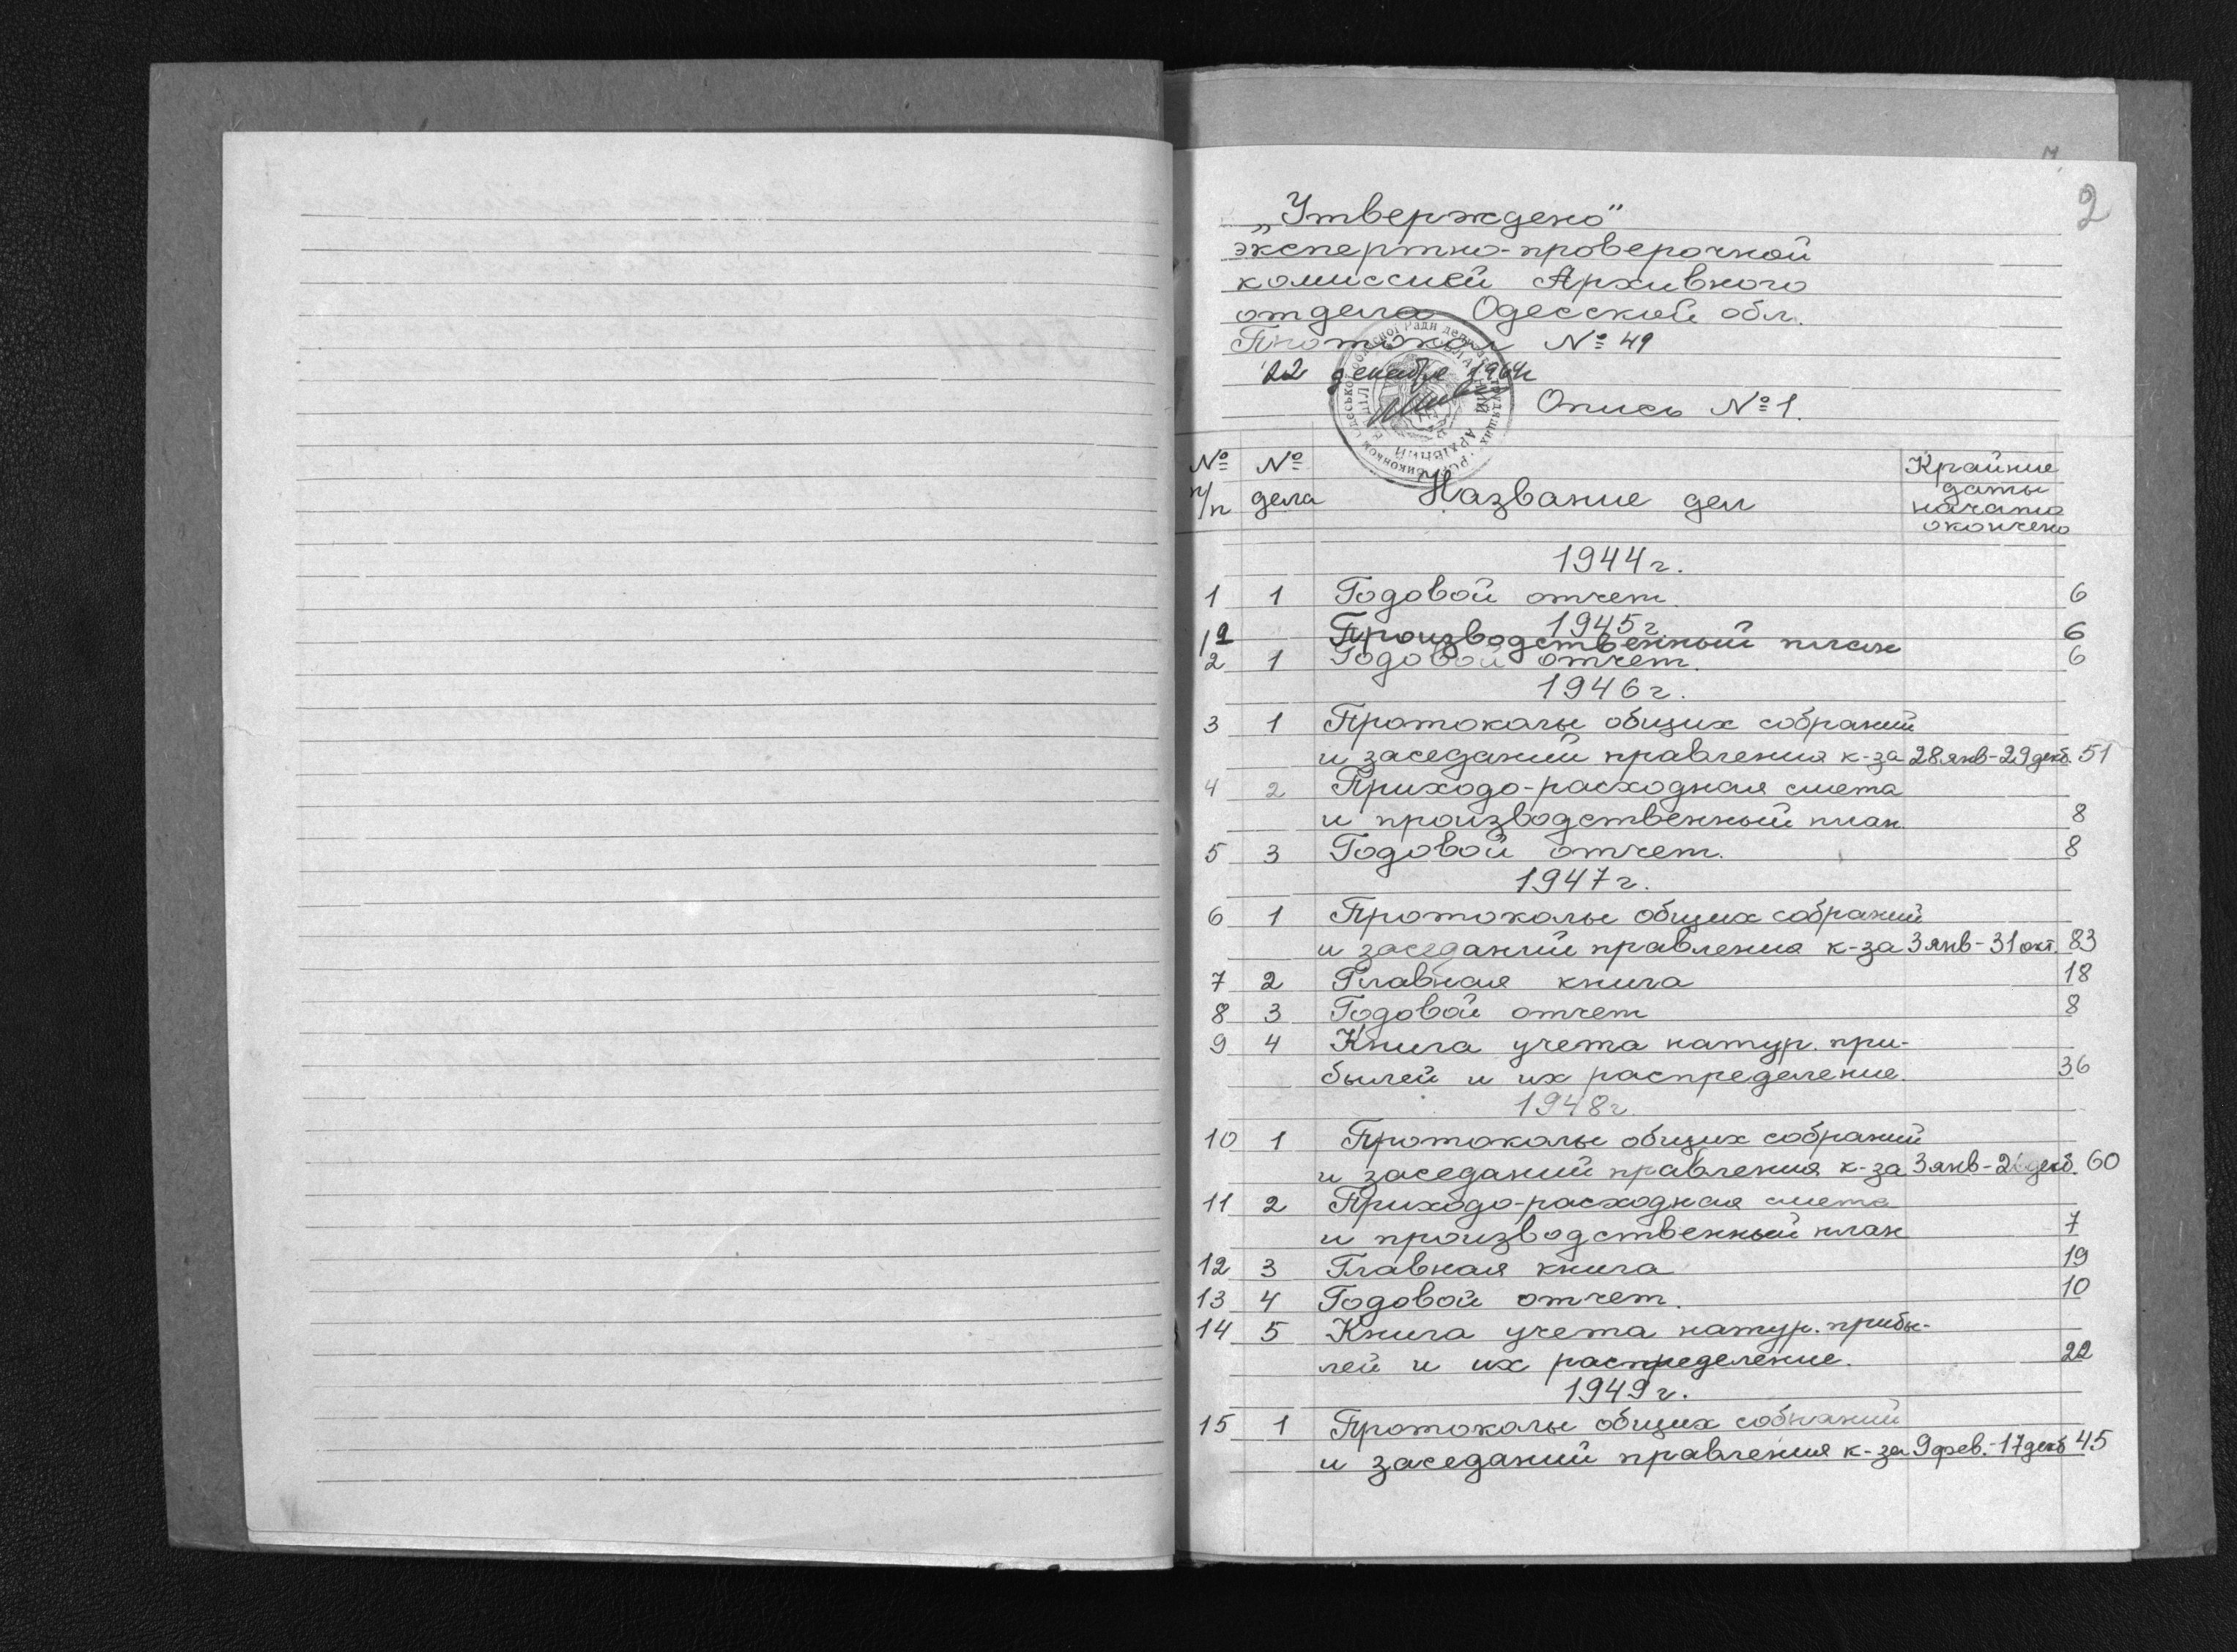 2
„Утверждено"
экспертно-проверочной
комиссией Архивного
отдела Одесской обл.
Протокол № 49
22 декабря 1964г
Опись № 1.
№ п/п № дела Название дел Крайние даты начато окончено
1944г.
1 1 Годовой отчет. 6
1945г.
1a Производственный план 6
2 1 Годовой отчет. 6
1946г.
3 1 Протоколы общих собраний
и заседаний правления к-за 28 янв-29 дек. 51
4 2 Приходо-расходная смета
и производственный план. 8
5 3 Годовой отчет. 8
1947г.
6 1 Протоколы общих собраний
и заседаний правления к-за 3 янв-31 окт. 83
7 2 Главная книга 18
8 3 Годовой отчет 8
9 4 Книга учета натур. при-
былей и их распределение. 36
1948г
10 1 Протоколы общих собраний
и заседаний правления к-за 3 янв- дек. 60
11 2 Приходо-расходная смета
и производственный план 7
12 3 Главная книга 19
13 4 Годовой отчет. 10
14 5 Книга учета натур. прибы-
лей и их распределение. 22
1949г.
15 1 Протоколы общих собраний
и заседаний правления к-за 9 фев.-17 дек 45